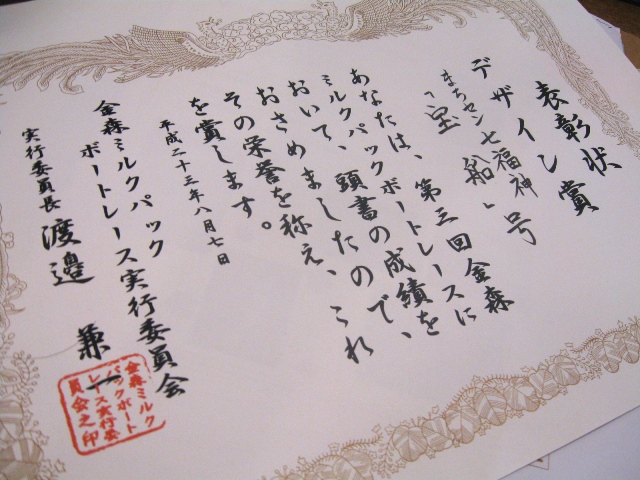 表彰状
デザイン賞
まちセン七福神号
「宝船」
あなたは、第三回金森
ミルクパックボートレースに
おいて、頭書の成績を
おさめましたので、
その栄誉を称え、これ
を賞します。
平成二十三年八月七日
金森ミルクパック
ボートレース実行委員会
実行委員長 渡邉 兼一
金森ミルク
パックボート
レース実行委
員会之印